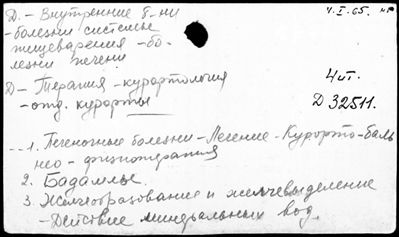 Д. - Внутренние б-ни
- болезни системы
пищеварения - бо-
лезни печени
Д - Терапия - курортология
- отд. курорты
4.I.65.
4 чт.
Д 32511.
1. Печеночные болезни - Лечение - Курорто-баль
нео - физиотерапия
2. Бадамлы.
3. Желчеобразование и желчевыделение
- Действие минеральных вод.